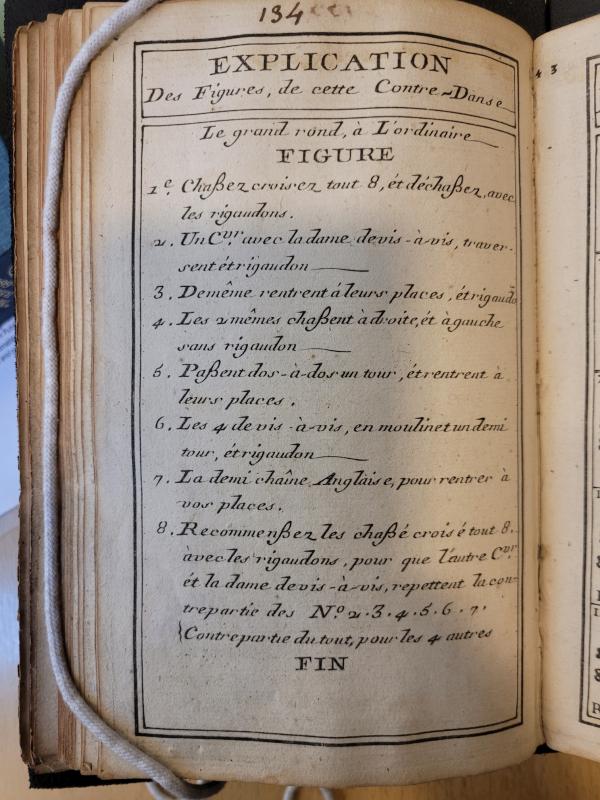 134
EXPLICATION
Des Figures, de cette Contre-Danse
Le grand rond, à L'ordinaire
FIGURE
1.e Chaßez croisez tout 8, ét déchaßez, avec
les rigaudons.
2. Un C.vr avec la dame de vis-à-vis, traver-
sent ét rigaudon
3. De même rentrent á leurs places, ét rigaudō
4. Les 2 mêmes chaßent à droite, ét à gauche
sans rigaudon
5. Paßent dos-à-dos un tour, ét rentrent à
leurs places.
6. Les 4 de vis-à-vis, en moulinet un demi
tour, ét rigaudon
7. La demi chaîne Anglaise, pour rentrer à
vos places.
8. Recommenßez les chaßé croisé tout 8.
àvec les rigaudons, pour que l'autre C.vr
ét la dame de vis-à-vis, repettent la con-
trepartie des N.o 2.3.4.5.6.7.
Contrepartie du tout, pour les 4 autres
FIN
43